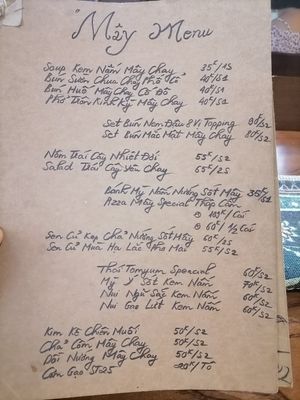 "Mây Menu
Soup Kem Nấm Mây Chay 35k/1S
Bún Sườn Chua Chay Phố Cổ 40k/S1
Bún Huế Mây Chay Cố Đô 40k/S1
Phở Thìn Kinh Kỳ Mây Chay 40k/S1
Set Bún Nem Đậu 8 Vị Topping 90k/S2
Set Bún Mắc Mật Mây Chay 80k/S2
Nộm Trái Cây Nhiệt Đới 55k/S2
Salad Trái Cây Yến Chay 55k/S2
Bánh Mỳ Nấm Nướng Sốt Mây 35k/S1
Pizza Mây Special Thập Cẩm
Sen Củ Kẹp Chả Nướng Sốt Mây 60k/2S
Sen Củ Mùa Hạ Lắc Phô Mai 55k/S2
Thái Tomyum Special 60k/S2
Mỳ Ý Sốt Kem Nấm 70k/S2
Nui Ngũ Sắc Kem Nấm 60k/S2
Nui Gạo Lứt Kem Nấm 60k/S2
Kim Kê Chiên Muối 50k/S2
Chả Cốm Mây Chay 50k/S2
Dồi Nướng Mây Chay 50k/S2
Cơm Gạo ST25 20k/Tô